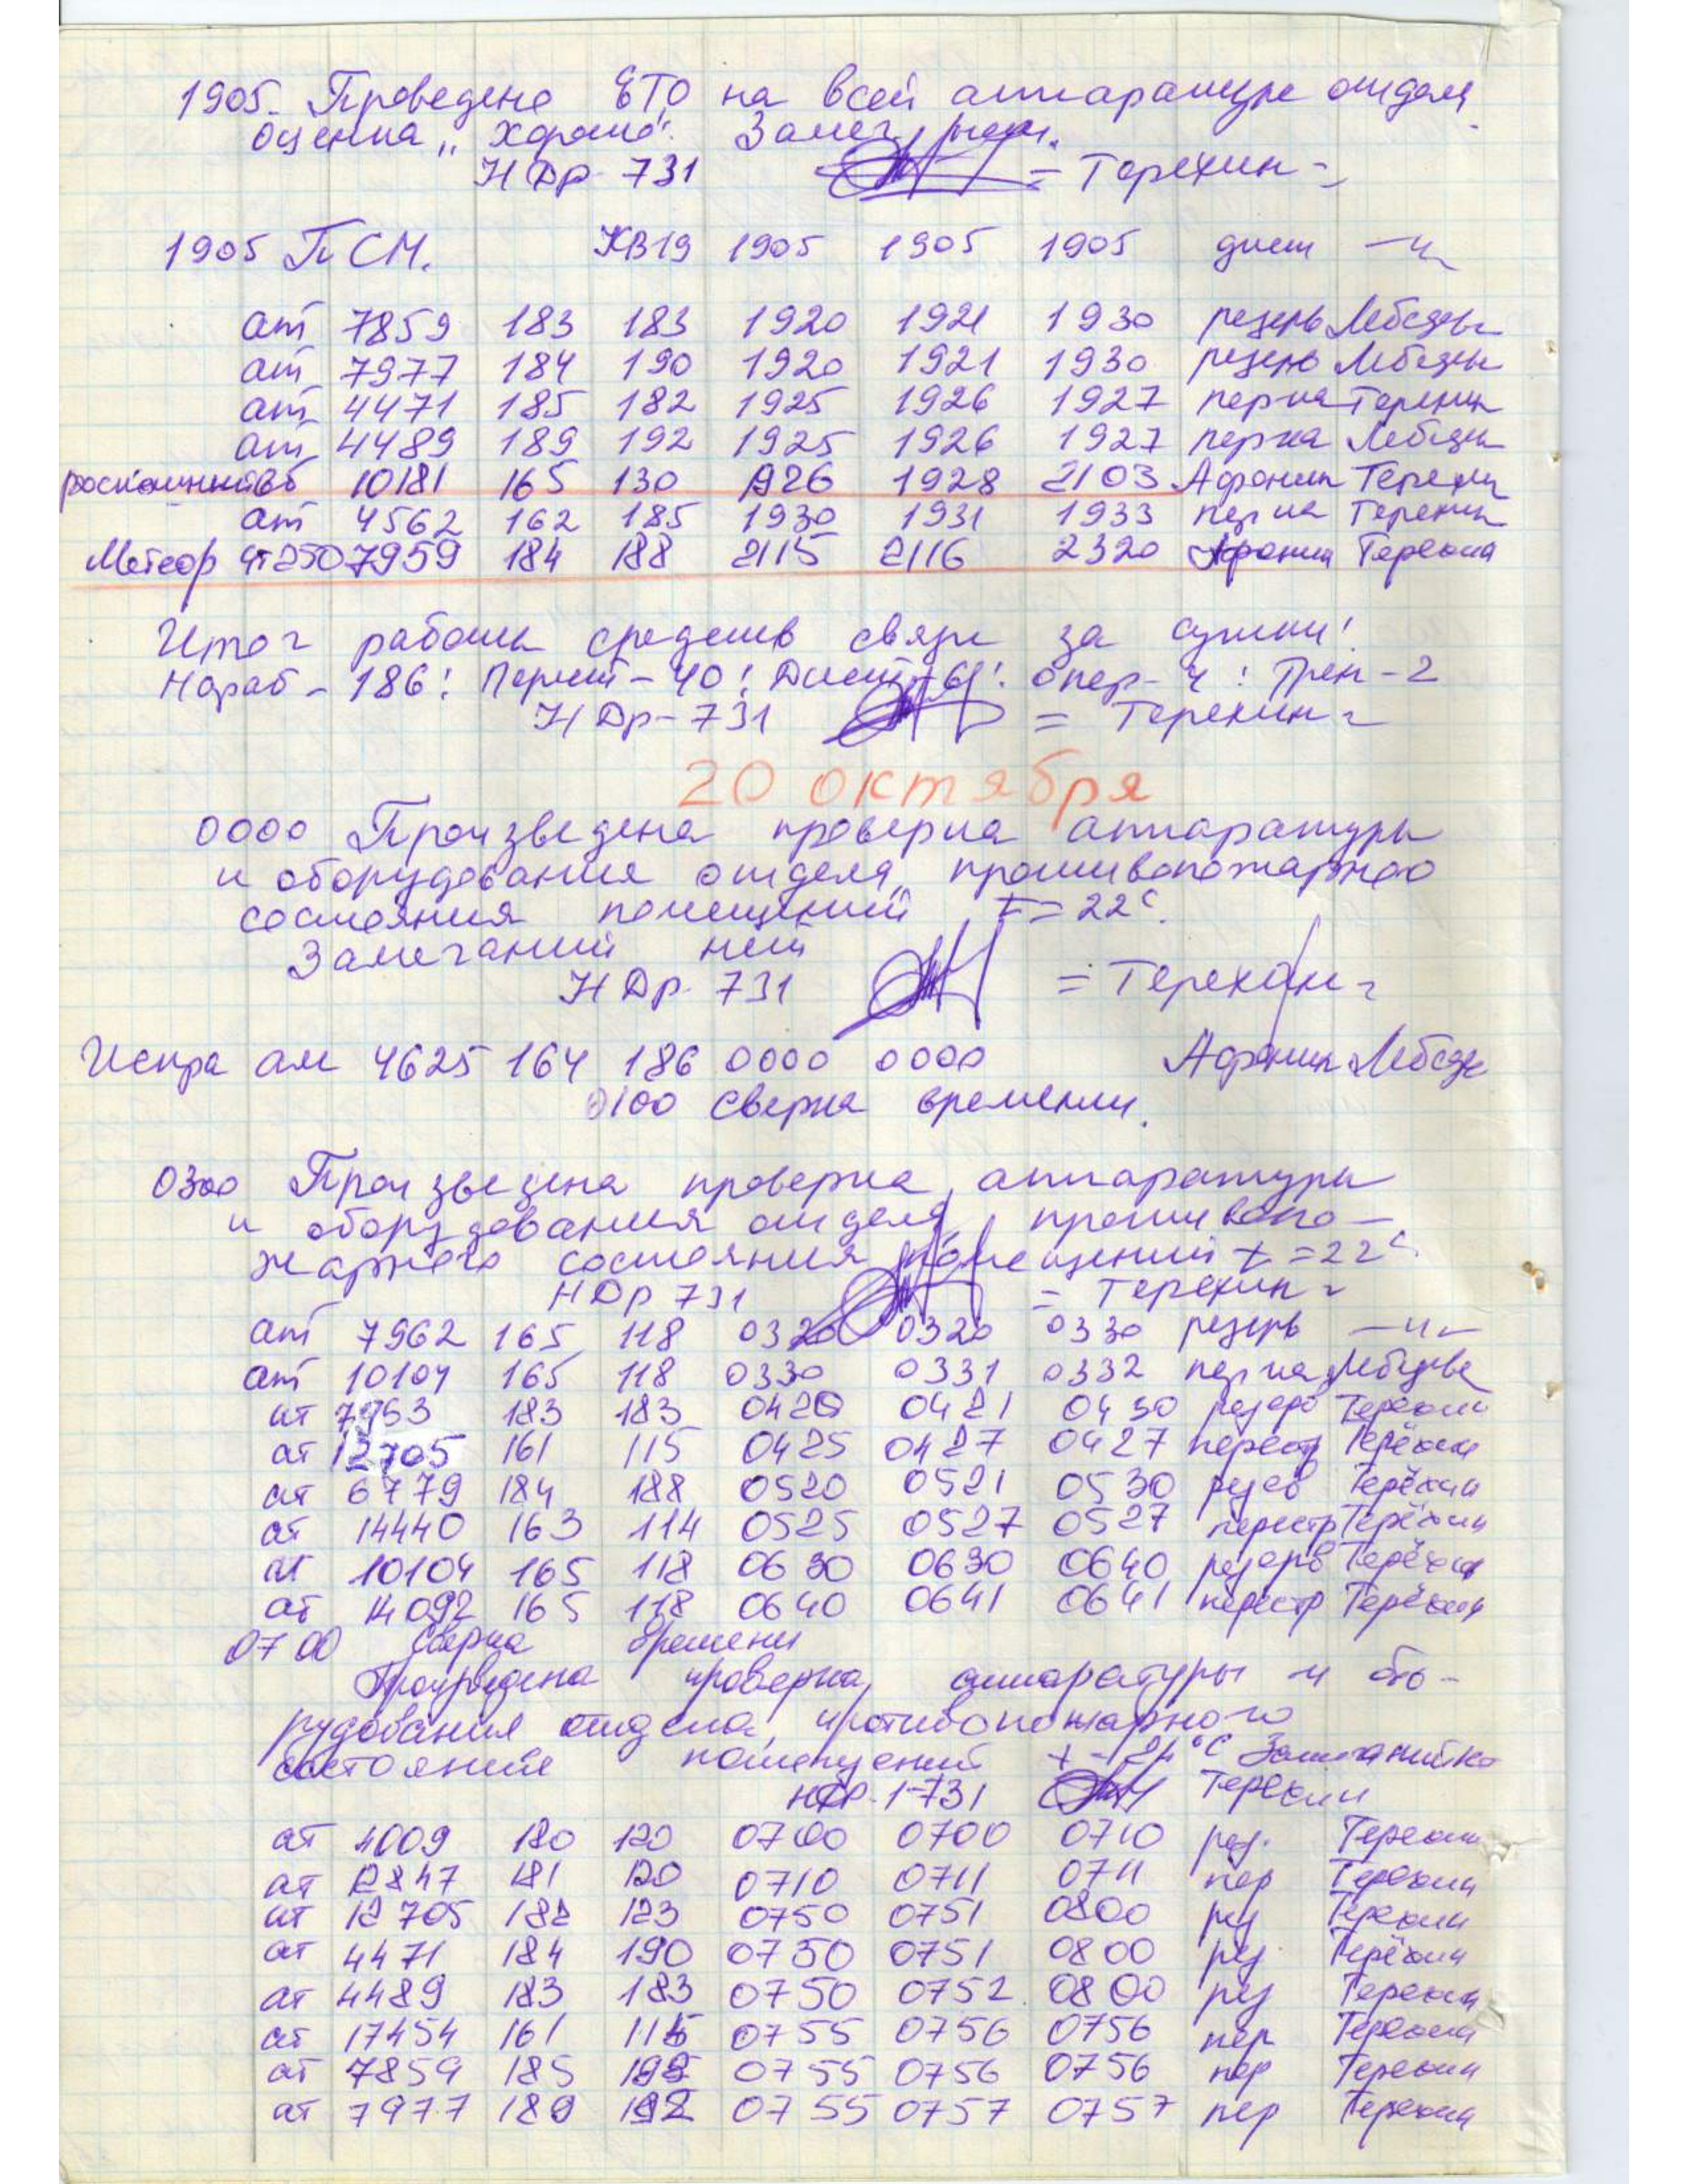 1905. Проведено ЕТО на всей аппаратуре отдела
оценка „хорошо". Замеч. нет.
НДр-731 = Терехин =
1905 ПСМ. КВ19 1905 1905 1905 дист —"—
ат 7859 183 183 1920 1921 1930 резерв Лебедев
ат 7977 184 190 1920 1921 1930 резерв Лебедев
ат 4471 185 182 1925 1926 1927 пер-ка Терехин
ат 4489 189 192 1925 1926 1927 пер-ка Лебедев
10181 165 130 1926 1928 2103 Афонин Терехин
ат 4562 162 185 1930 1931 1933 пер-ка Терехин
Метеор ат250 7959 184 188 2115 2116 2320 Афонин Терехин
Итог работы средств связи за сутки!
Нараб - 186! Перест - 40! Дист - 61! Опер - 4! Трен - 2
НДр-731 = Терехин =
20 октября
0000 Произведена проверка аппаратуры
и оборудования отдела, противопожарного
состояния помещений t = 22°.
Замечаний нет
НДр-731 = Терехин =
Искра ат 4625 164 186 0000 0000 Афонин Лебедев
0100 сверка времени.
0300 Произведена проверка аппаратуры
и оборудования отдела, противопо-
жарного состояния помещений t = 22°.
НДр 731 = Терехин =
ат 7962 165 118 0320 0320 0330 резерв —"—
ат 10104 165 118 0330 0331 0332 пер-ка Лебедев
ат 7963 183 183 0420 0421 0430 резерв Терехин
ат 12705 161 115 0425 0427 0427 перестр Терёхин
ат 6779 184 188 0520 0521 0530 резев Терёхин
ат 14440 163 114 0525 0527 0527 перестр Терёхин
ат 10104 165 118 0630 0630 0640 резерв Терёхин
ат 14092 165 118 0640 0641 0641 перестр Терёхин
0700 Сверка времени
Произведена проверка аппаратуры и обо-
рудования отдела, противопожарного
состояние помещений °C Замечаний
НДР-1-731 Терехин
ат 4009 180 120 0700 0700 0710 рез. Терехин
ат 12847 181 120 0710 0711 0711 пер Терехин
ат 12705 182 123 0750 0751 0800 рез Терехин
ат 4471 184 190 0750 0751 0800 рез Терёхин
ат 4489 183 183 0750 0752 0800 рез Терехин
ат 17454 161 115 0755 0756 0756 пер Терехин
ат 7859 185 0755 0756 0756 пер Терехин
ат 7977 189 192 0755 0757 0757 пер Терехин